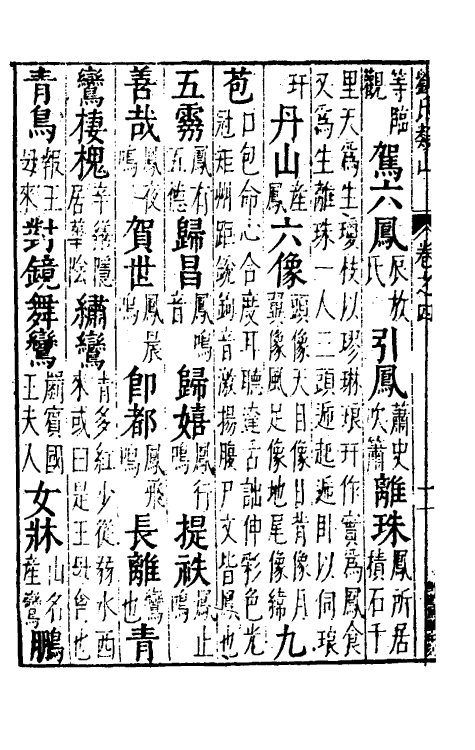 劉氏類山 卷之四
等臨觀 駕六鳳 辰放氏 引鳳 蕭史吹簫 離珠 鳳所居積石千
里天爲生瓊枝以璆琳琅玕作實爲鳳食又爲生離珠一人三頭遞起遞臥以伺琅
玕 丹山 產鳳 六像 頭像天目像日背像月翼像風足像地尾像緯 九
苞 口包命心合度耳聽達舌詘伸彩色光冠矩州距銳鉤音激揚腹戶文皆鳳也
五霧 鳳有五德 歸昌 鳳鳴音 歸嬉 鳳行鳴 提袂 鳳止鳴
善哉 鳳夜鳴 賀世 鳳晨鳴 卽都 鳳飛鳴 長離 鸞也 青
鸞棲槐 辛繕隱居華陰 繡鸞 青多紅少從弱水西來或曰是王母禽也
青鳥 報王母來 對鏡舞鸞 罽賓國王夫人 女牀 山名產鸞 鵬